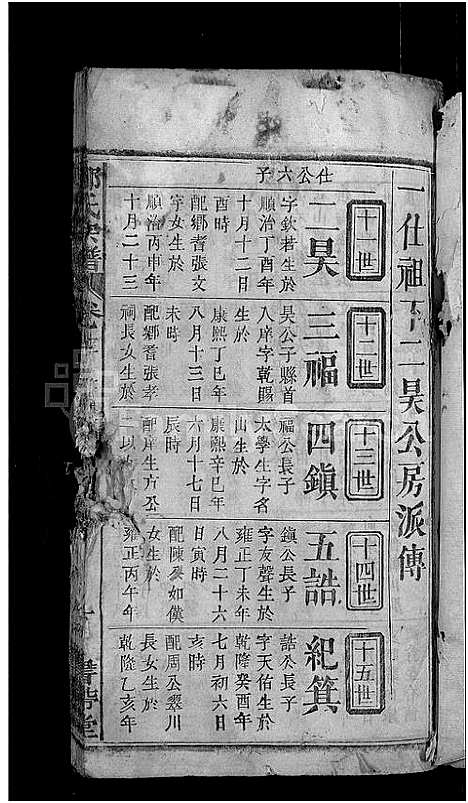 一仕祖下二昊公房派傳
十一世
仕公六子
二昊
字欽若生於
順治丁酉年
十月十二日
酉時
配鄉耆張文
宇女生於
順治丙申年
十月二十三
十二世
三福
昊公子縣首
八庠字乾賜
生於
康熙丁巳年
八月十三日
未時
配鄉耆張孝
祠長女生於
十三世
四鎮
福公長子
太學生字名
山生於
康熙辛巳年
六月十七日
辰時
配庠生方公
十四世
五誥
鎮公長子
字友聲生於
雍正丁未年
八月二十六
日寅時
配陳癸如僕
女生於
雍正丙午年
十五世
紀箕
誥公長子
字天佑生於
乾隆癸酉年
七月初六日
亥時
配周公翠川
長女生於
乾隆乙亥年
氏宗譜